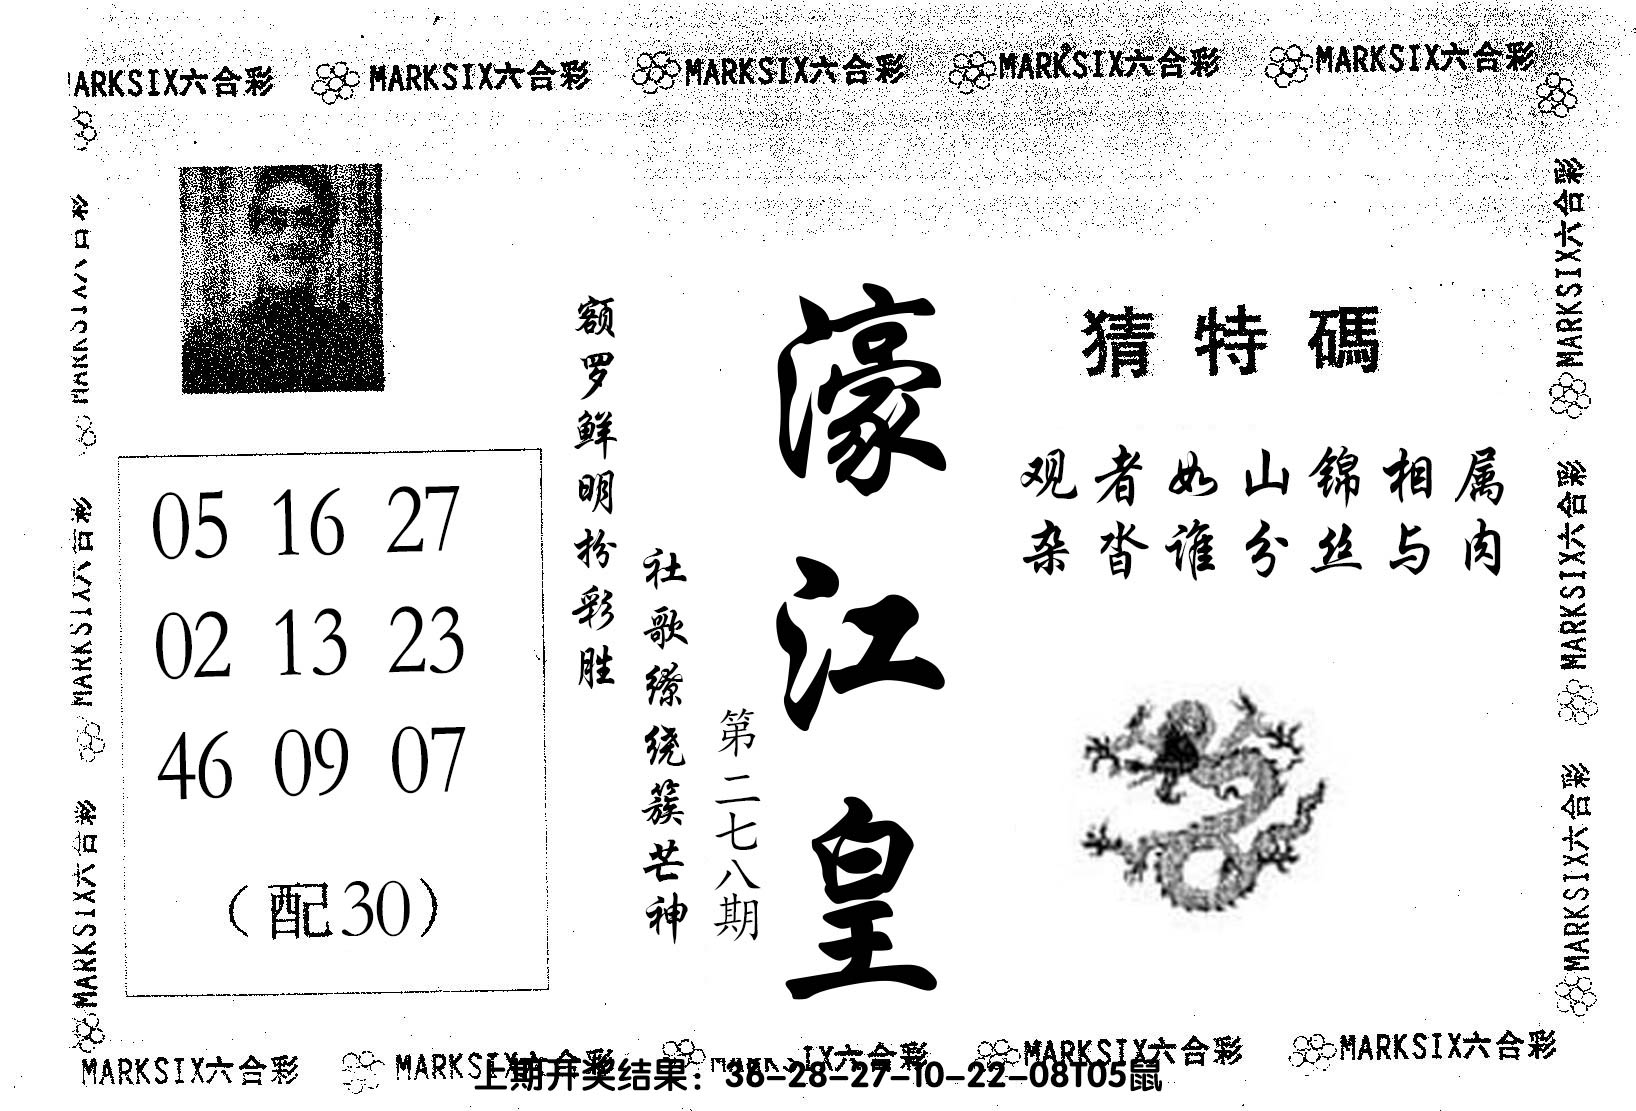 MARKSIX六合彩 MARKSIX六合彩 MARKSIX六合彩 MARKSIX六合彩 MARKSIX六合彩
猜特碼
观者如山锦相属
杂沓谁分丝与肉
濠江皇
第二七八期
额罗鲜明扮彩胜
社歌缭绕簇芒神
05 16 27
02 13 23
46 09 07
（配30）
MARKSIX六合彩
MARKSIX六合彩
MARKSIX六合彩
MARKSIX六合彩
MARKSIX六合彩
MARKSIX六合彩
MARKSIX六合彩 MARKSIX六合彩 MARKSIX六合彩 MARKSIX六合彩
上期开奖结果：36-28-27-10-22-08T05鼠